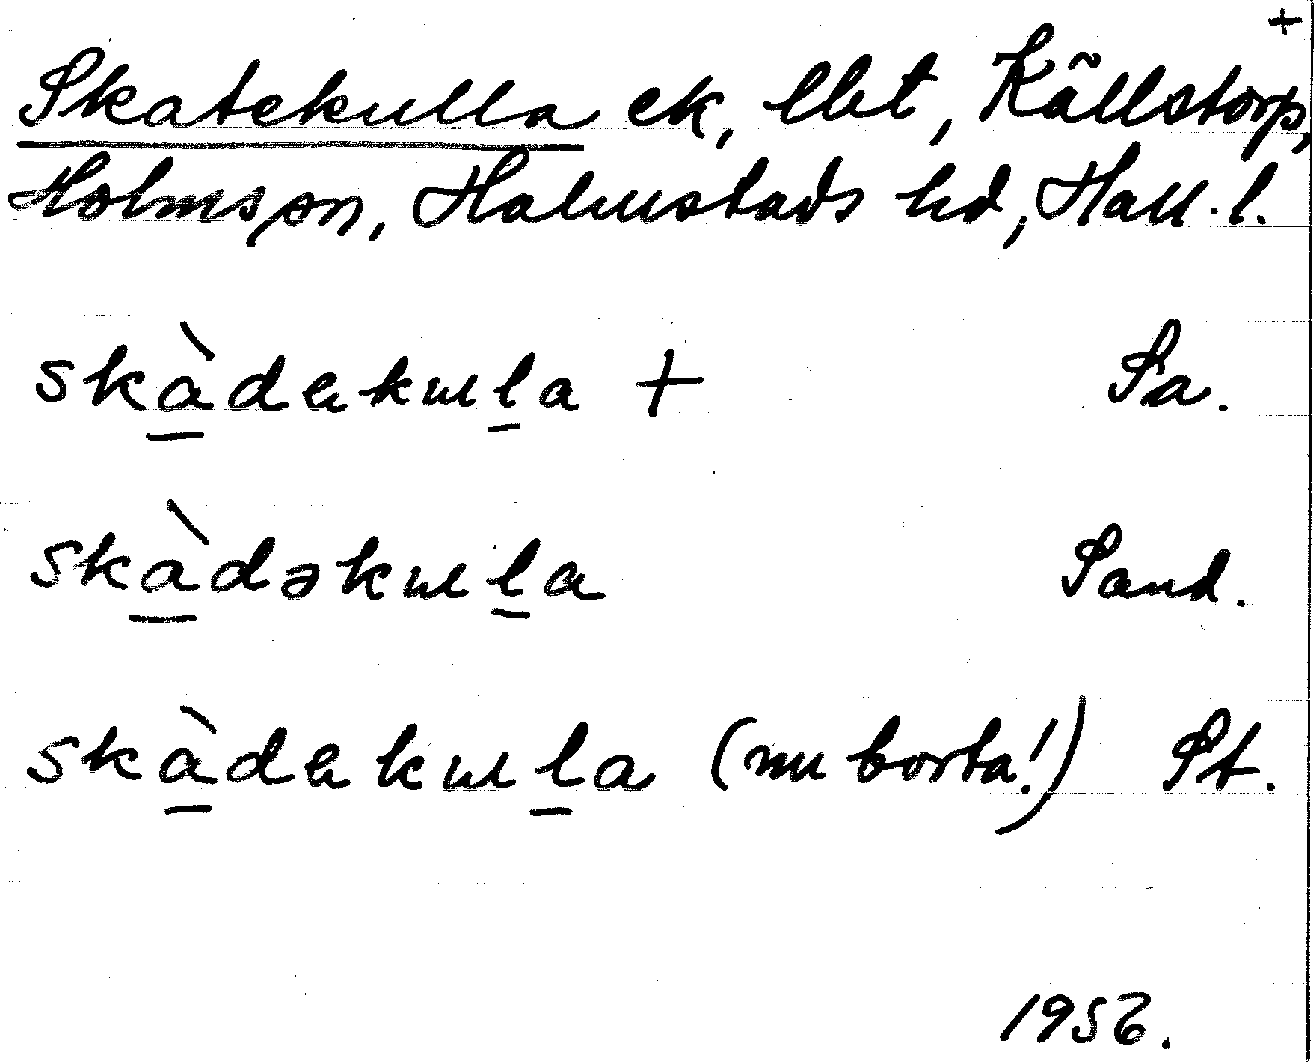 +
Skatekulla ek, llet, Källstorp,
Holms sn, Halmstads hd, Hall. l.
skàdekula + Sa.
skàdəkula Sand.
skàdekula (nu borta!) St.
1956.